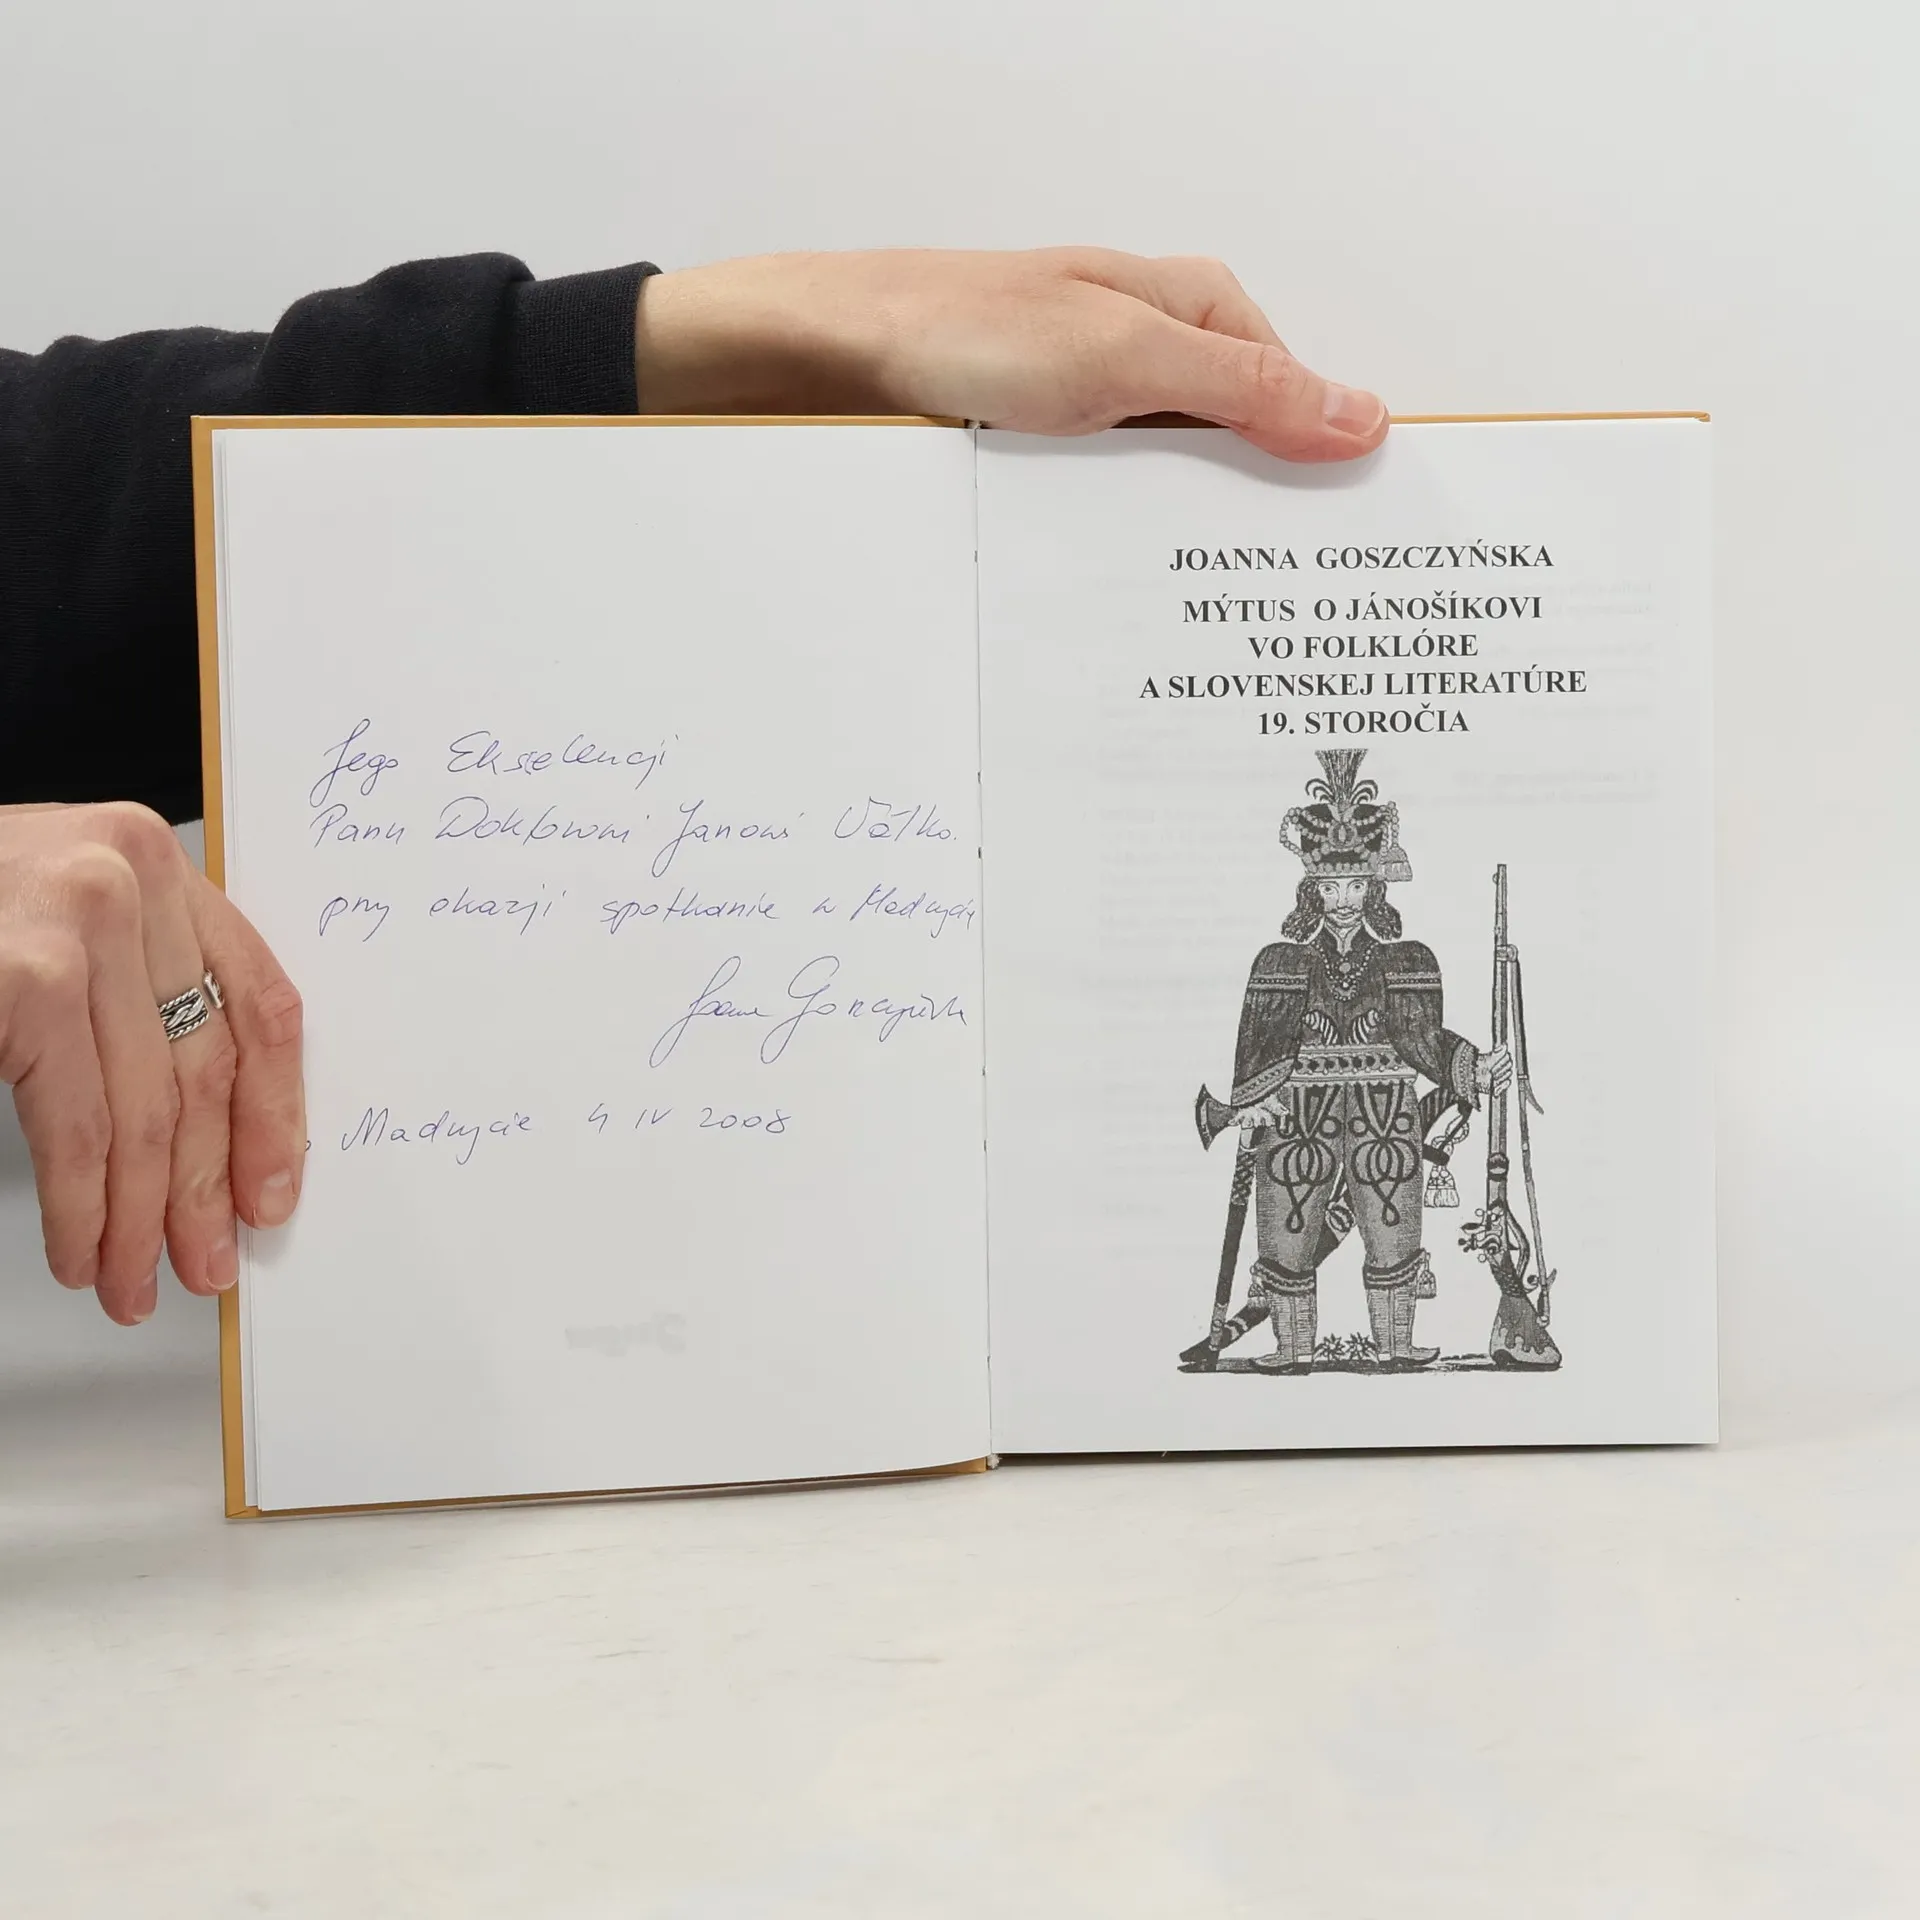 Jego Ekselencji
Panu Doktorowi Janowi
przy okazji spotkania w Madrycie
Joanna Goszczyńska
Madrycie 4 IV 2008
JOANNA GOSZCZYŃSKA
MÝTUS O JÁNOŠÍKOVI
VO FOLKLÓRE
A SLOVENSKEJ LITERATÚRE
19. STOROČIA